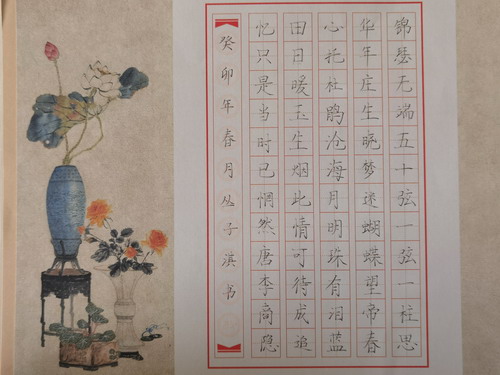 锦瑟无端五十弦一弦一柱思
华年庄生晓梦迷蝴蝶望帝春
心托杜鹃沧海月明珠有泪蓝
田日暖玉生烟此情可待成追
忆只是当时已惘然唐李商隐
癸卯年春月丛子淇书